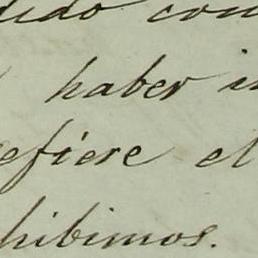 dido con
haber i
efiere el
hibimos.